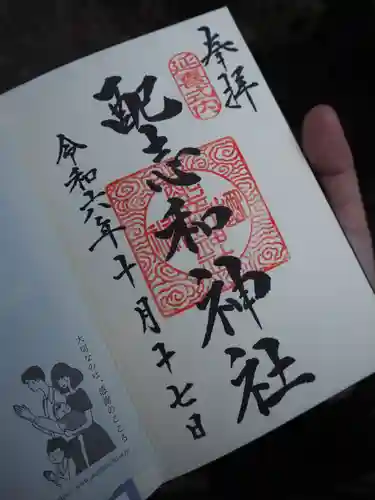 奉拝
延喜式内
配志和神社
令和六年十月十七日
大切なのは、感謝のこころ